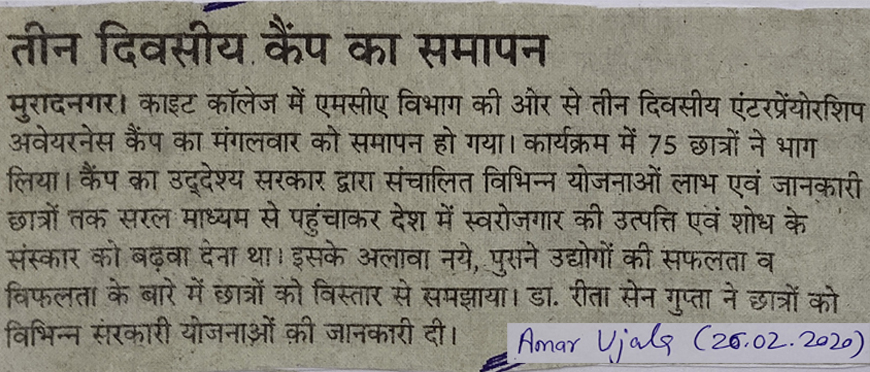 तीन दिवसीय कैंप का समापन
मुरादनगर। काइट कॉलेज में एमसीए विभाग की ओर से तीन दिवसीय एंटरप्रेंयोरशिप
अवेयरनेस कैंप का मंगलवार को समापन हो गया। कार्यक्रम में 75 छात्रों ने भाग
लिया। कैंप का उद्देश्य सरकार द्वारा संचालित विभिन्न योजनाओं लाभ एवं जानकारी
छात्रों तक सरल माध्यम से पहुंचाकर देश में स्वरोजगार की उत्पत्ति एवं शोध के
संस्कार को बढ़वा देना था। इसके अलावा नये, पुराने उद्योगों की सफलता व
विफलता के बारे में छात्रों को विस्तार से समझाया। डा. रीता सेन गुप्ता ने छात्रों को
विभिन्न सरकारी योजनाओं की जानकारी दी।
Amar Ujala (26.02.2020)